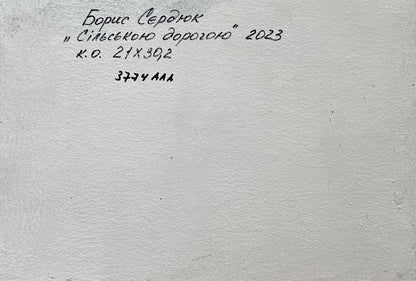 Борис Сердюк
„Сільською дорогою" 2023
к.о. 21х30,2
3774 АЛЛ